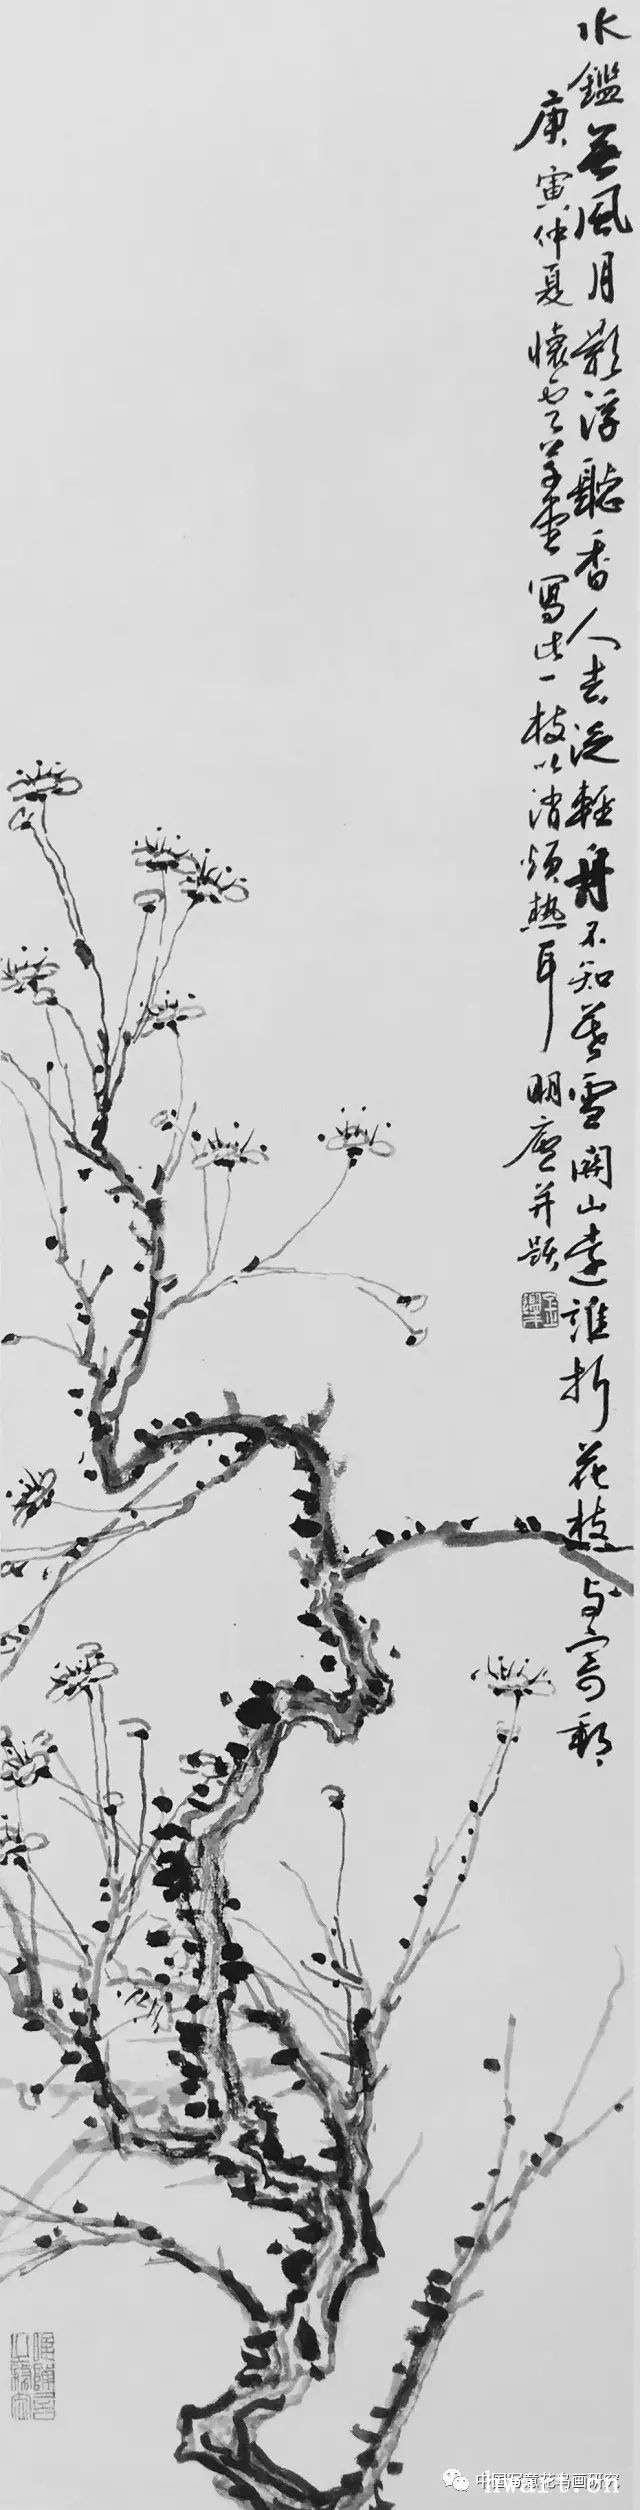 水鑑無風月影浮聽香人去泛輕舟不知暮雪關山遠誰折花枝與寄郵
庚寅仲夏懷雲草堂寫此一枝以消煩熱耳明廬并題
中国写意花鸟画研究
hwart.cn